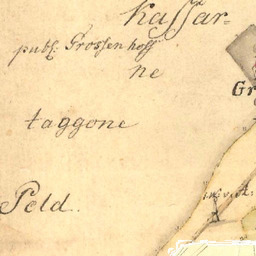 Kaſſar=
publ: Groſſenhoff
ne
taggone
Peld.
Gr